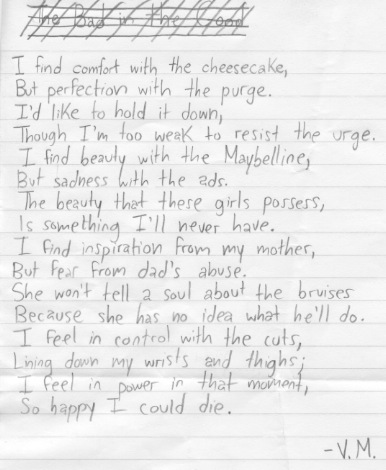 The Bad in the Good
I find comfort with the cheesecake,
But perfection with the purge.
I'd like to hold it down,
Though I'm too weak to resist the urge.
I find beauty with the Maybelline,
But sadness with the ads.
The beauty that these girls possess,
Is something I'll never have.
I find inspiration from my mother,
But fear from dad's abuse.
She won't tell a soul about the bruises
Because she has no idea what he'll do.
I feel in control with the cuts,
Lining down my wrists and thighs;
I feel in power in that moment,
So happy I could die.
-V.M.